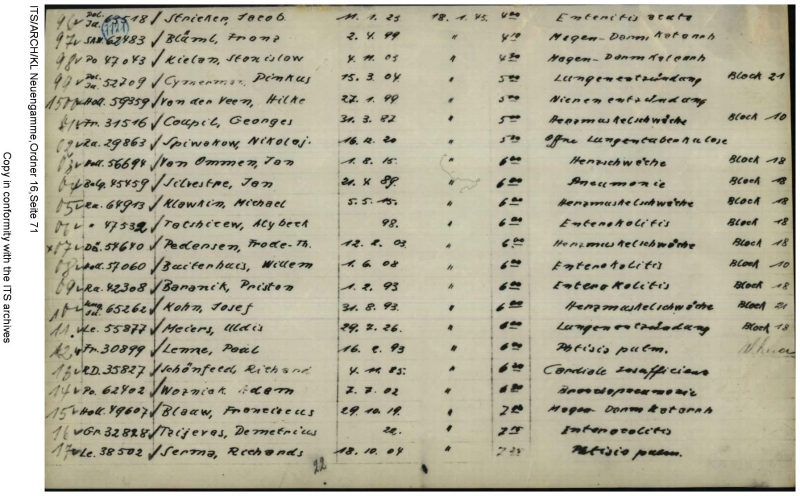 ITS/ARCH/KL Neuengamme, Ordner 16, Seite 71
Copy in conformity with the ITS archives
96 Pol. Ju. 65518 Stricker, Jacob 11. 1. 25 18. 1. 45. 4 00 Enteritis acuta
97 SAW. 62483 Bläml, Franz 2. 4. 99 " 4 10 Magen-Darmkatarrh
98 Po 47043 Kielan, Stanislaw 4. 11. 05 " 4 30 Magen-Darmkatarrh
99 Pol. Ju. 52709 Cymerman, Pinkus 15. 3. 04. " 5 00 Lungenentzündung Block 21
1500 Holl. 59359 Van der Veen, Hilke 27. 1. 99 " 5 00 Nierenentzündung
01 Fr. 31516 Coupil, Georges 31. 3. 87 " 5 00 Herzmuskelschwäche Block 10
02 Ru. 29863 Spiwakow, Nikolaj. 16. 12. 20 " 5 00 Offne Lungentuberkulose
03 Holl. 56694 Van Ommen, Jan 1. 8. 15. " 6 00 Herzschwäche Block 18
04 Belg. 45459 Silvestre, Jan 21. 4. 89. " 6 00 Pneumonie Block 18
05 Ru. 64913 Klawkin, Michael 5. 5. 15. " 6 00 Herzmuskelschwäche Block 18
06 " 47532 Tatshicew, Alybeck 98. " 6 00 Enterokolitis Block 18
x07 Dä. 54640 Pedersen, Frode-Th. 12. 2. 03 " 6 00 Herzmuskelschwäche Block 18
08 Holl. 57060 Buitenhuis, Willem 1. 6. 08 " 6 00 Enterokolitis Block 10
09 Ru. 42308 Baranik, Priston 1. 2. 93 " 6 00 Enterokolitis Block 18
10 Ung. Ju. 65262 Kohn, Josef 31. 8. 93. " 6 00 Herzmuskelschwäche Block 21
11 Le. 55877 Meiers, Uldis 29. 7. 26. " 6 00 Lungenentzündung Block 18
12 Fr. 30899 Lenne, Paul 16. 2. 93 " 6 00 Phtisis pulm.
13 RD. 35827 Schönfeld, Richard 4. 11 85. " 6 00 Cardiale Insufficiens
14 Po. 62402 Wozniak Adam 7. 7. 02 " 6 00 Bronchopneumonie
15 Holl. 49607 Blaauw, Franciscus 29. 10. 19. " 7 00 Magen-Darmkatarrh
16 Gr. 32828 Tzijevas, Demetrius 22. " 7 15 Enterocolitis
17 Le. 38502 Serma, Richards 18. 10. 04 " 7 35 Phtisis pulm.
22